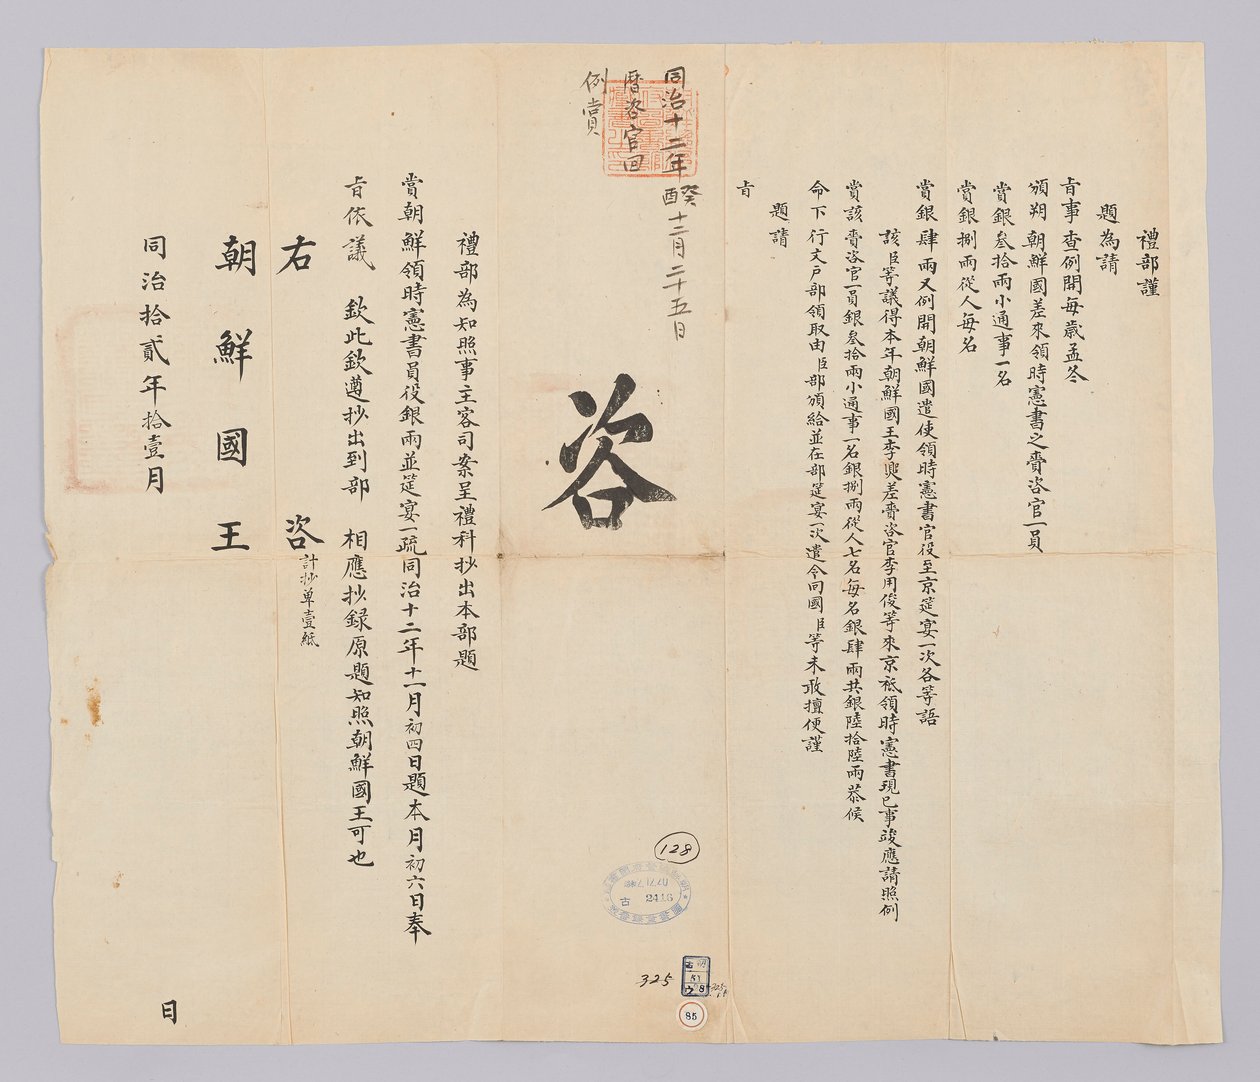 禮部謹
題為請
旨事查例開每歲孟冬
頒朔朝鮮國差來領時憲書之賫咨官一員
賞銀叁拾兩小通事一名
賞銀捌兩從人每名
賞銀肆兩又例開朝鮮國遣使領時憲書官役至京筵宴一次各等語
該臣等議得本年朝鮮國王李㷩差賫咨官李用俊等來京祗領時憲書現已事竣應請照例
賞該賫咨官一員銀叁拾兩小通事一名銀捌兩從人七名每名銀肆兩共銀陸拾陸兩恭候
命下行文戶部領取由臣部頒給並在部筵宴一次遣令回國臣等未敢擅便謹
題請
旨
同治十二年癸酉十二月二十五日
曆咨官回
例賞
咨
128
72.12.20
古 2416
325
51
85
禮部為知照事主客司案呈禮科抄出本部題
賞朝鮮領時憲書員役銀兩並筵宴一疏同治十二年十一月初四日題本月初六日奉
旨依議 欽此欽遵抄出到部 相應抄錄原題知照朝鮮國王可也
右 咨 計抄单壹紙
朝鮮國王
同治拾貳年拾壹月 日